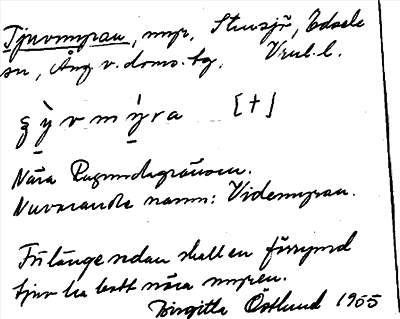 Tjuvmyran, myr, Stensjö, Edsele
sn, Ång v. doms. tg. Vrul. l.
ʒ ỳ v m ý r a [+]
Nära Ragundagränsen.
Nuvarande namn: Videmyran.
För länge sedan skall en förrymd
tjuv ha bott nära myren.
Birgitta Östlund 1955